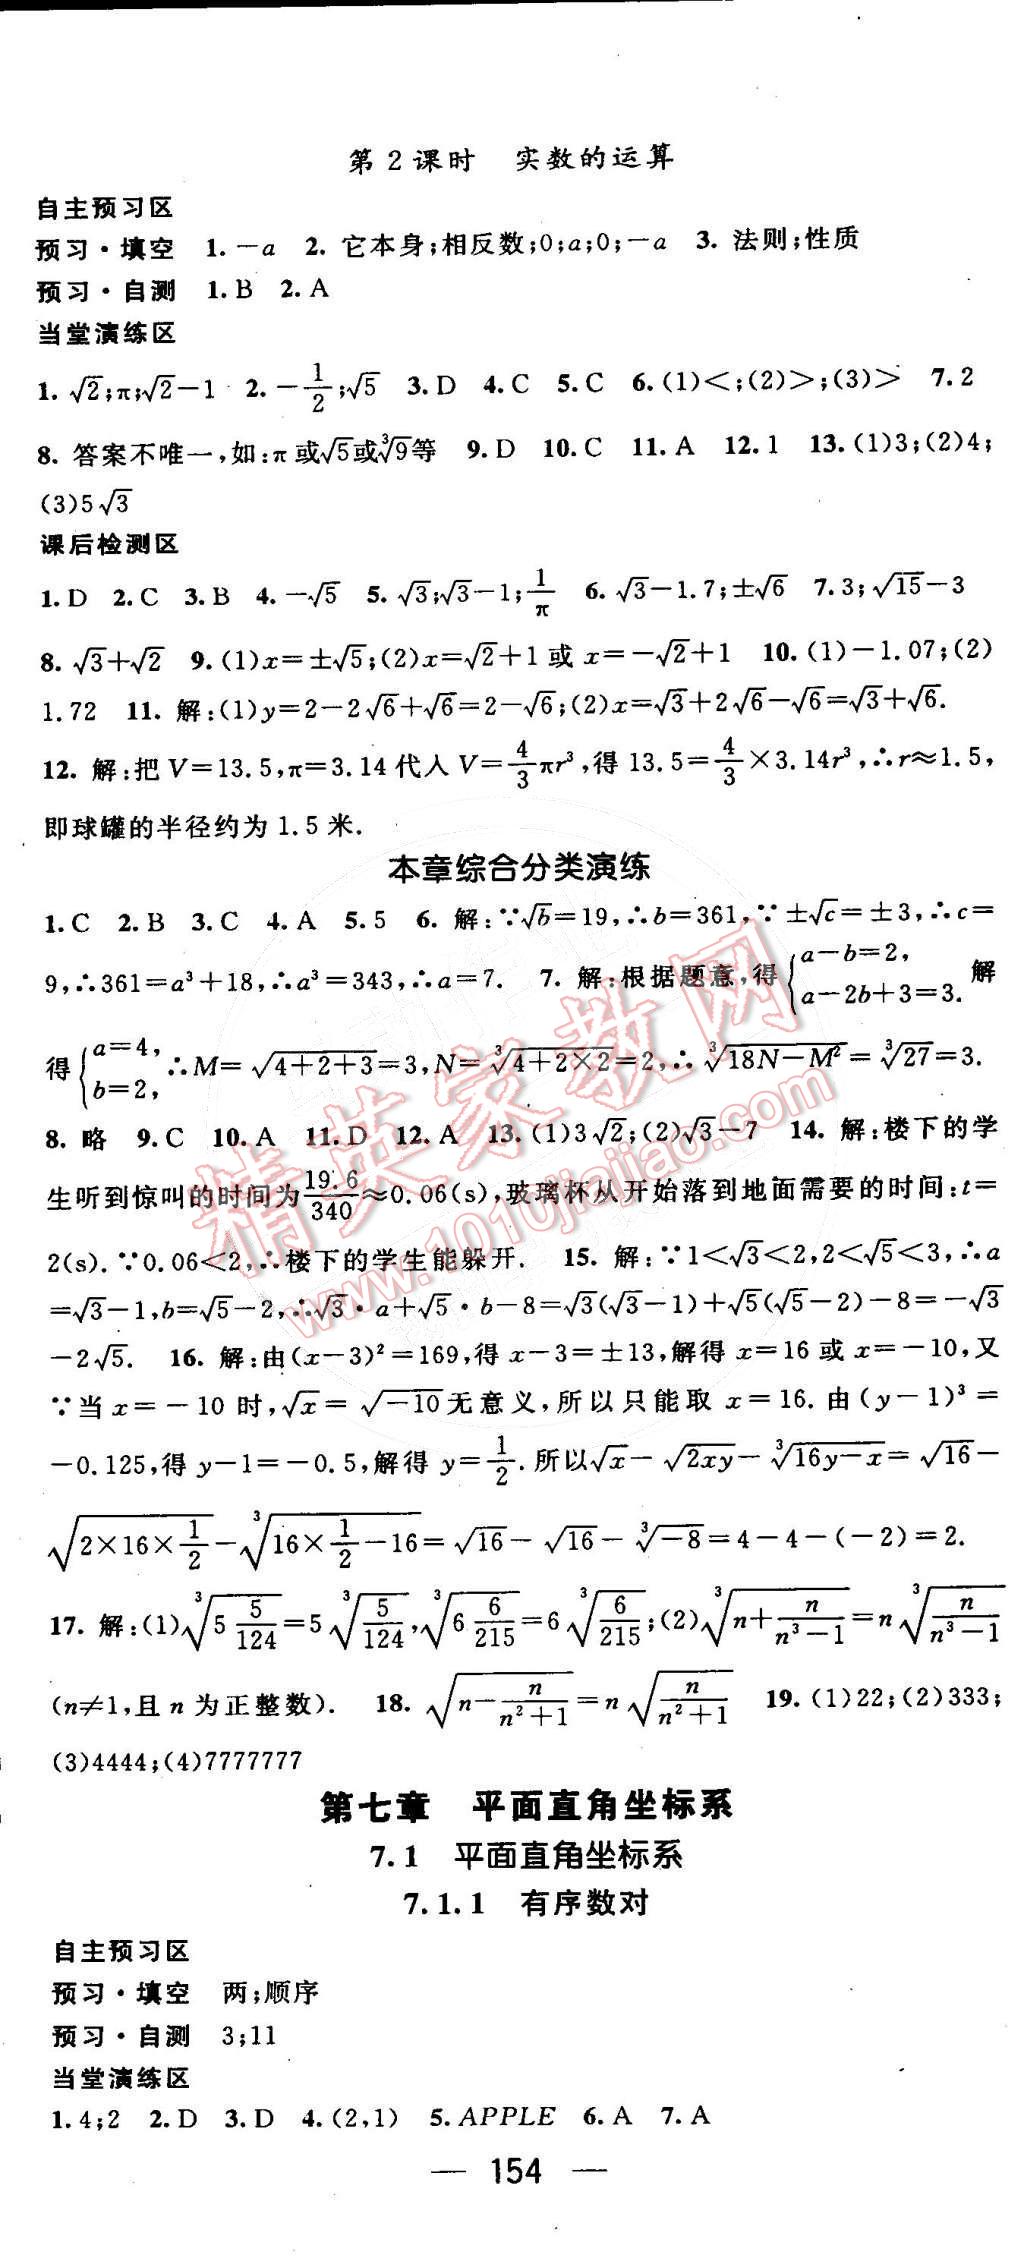 第2课时 实数的运算
自主预习区
预习·填空 1. －a 2. 它本身;相反数;0;a;0;－a 3. 法则;性质
预习·自测 1. B 2. A
当堂演练区
1. √2;π;√2－1 2. －1/2;√5 3. D 4. C 5. C 6. (1)＜;(2)＞;(3)＞ 7. 2
8. 答案不唯一,如:π或√5或∛9等 9. D 10. C 11. A 12. 1 13. (1)3;(2)4;
(3)5√3
课后检测区
1. D 2. C 3. B 4. －√5 5. √3;√3－1;1/π 6. √3－1.7;±√6 7. 3;√15－3
8. √3＋√2 9. (1)x＝±√5;(2)x＝√2＋1 或 x＝－√2＋1 10. (1)－1.07;(2)
1.72 11. 解:(1)y＝2－2√6＋√6＝2－√6;(2)x＝√3＋2√6－√6＝√3＋√6.
12. 解:把V＝13.5,π＝3.14代人V＝4/3πr³,得 13.5＝4/3×3.14r³,∴r≈1.5,
即球罐的半径约为1.5米.
本章综合分类演练
1. C 2. B 3. C 4. A 5. 5 6. 解:∵√b＝19,∴b＝361,∵±√c＝±3,∴c＝
9,∴361＝a³＋18,∴a³＝343,∴a＝7. 7. 解:根据题意,得{a－b＝2, a－2b＋3＝3. 解
得{a＝4, b＝2, ∴M＝√(4＋2＋3)＝3,N＝∛(4＋2×2)＝2,∴∛(18N－M²)＝∛27＝3.
8. 略 9. C 10. A 11. D 12. A 13. (1)3√2;(2)√3－7 14. 解:楼下的学
生听到惊叫的时间为19.6/340≈0.06(s),玻璃杯从开始落到地面需要的时间:t＝
2(s).∵0.06＜2,∴楼下的学生能躲开. 15. 解:∵1＜√3＜2,2＜√5＜3,∴a
＝√3－1,b＝√5－2,∴√3·a＋√5·b－8＝√3(√3－1)＋√5(√5－2)－8＝－√3
－2√5. 16. 解:由(x－3)²＝169,得 x－3＝±13,解得 x＝16 或 x＝－10,又
∵当 x＝－10 时,√x＝√－10无意义,所以只能取 x＝16. 由(y－1)³＝
－0.125,得 y－1＝－0.5,解得 y＝1/2. 所以√x－√(2xy)－∛(16y－x)＝√16－
√(2×16×1/2)－∛(16×1/2－16)＝√16－√16－∛－8＝4－4－(－2)＝2.
17. 解:(1)∛(5 5/124)＝5∛(5/124),∛(6 6/215)＝6∛(6/215);(2)∛(n＋n/(n³－1))＝n∛(n/(n³－1))
(n≠1,且 n 为正整数). 18. √(n－n/(n²＋1))＝n√(n/(n²＋1)) 19. (1)22;(2)333;
(3)4444;(4)7777777
第七章 平面直角坐标系
7.1 平面直角坐标系
7.1.1 有序数对
自主预习区
预习·填空 两;顺序
预习·自测 3;11
当堂演练区
1. 4;2 2. D 3. D 4. (2,1) 5. APPLE 6. A 7. A
— 154 —
精英家教网
www.1010jiajiao.com